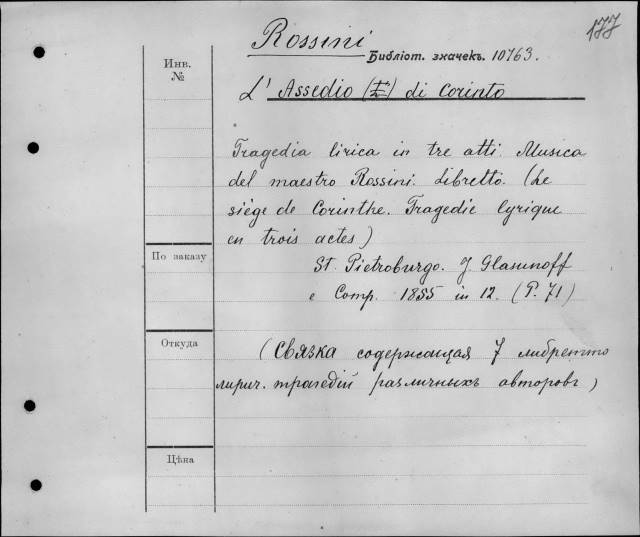 177
Rossini
Библіот. значекъ. 10763.
Инв.
№
L' Assedio di Corinto
Tragedia lirica in tre atti. Musica
del maestro Rossini. Libretto. (Le
siége de Corinthe. Tragedie lyrique
en trois actes)
По заказу
St. Pietroburgo. J. Glasunoff
e Comp. 1855 in 12. (P. 71)
Откуда
(Связка содержащая 7 либретто
лирич. трагедій различныхъ авторовъ)
Цѣна